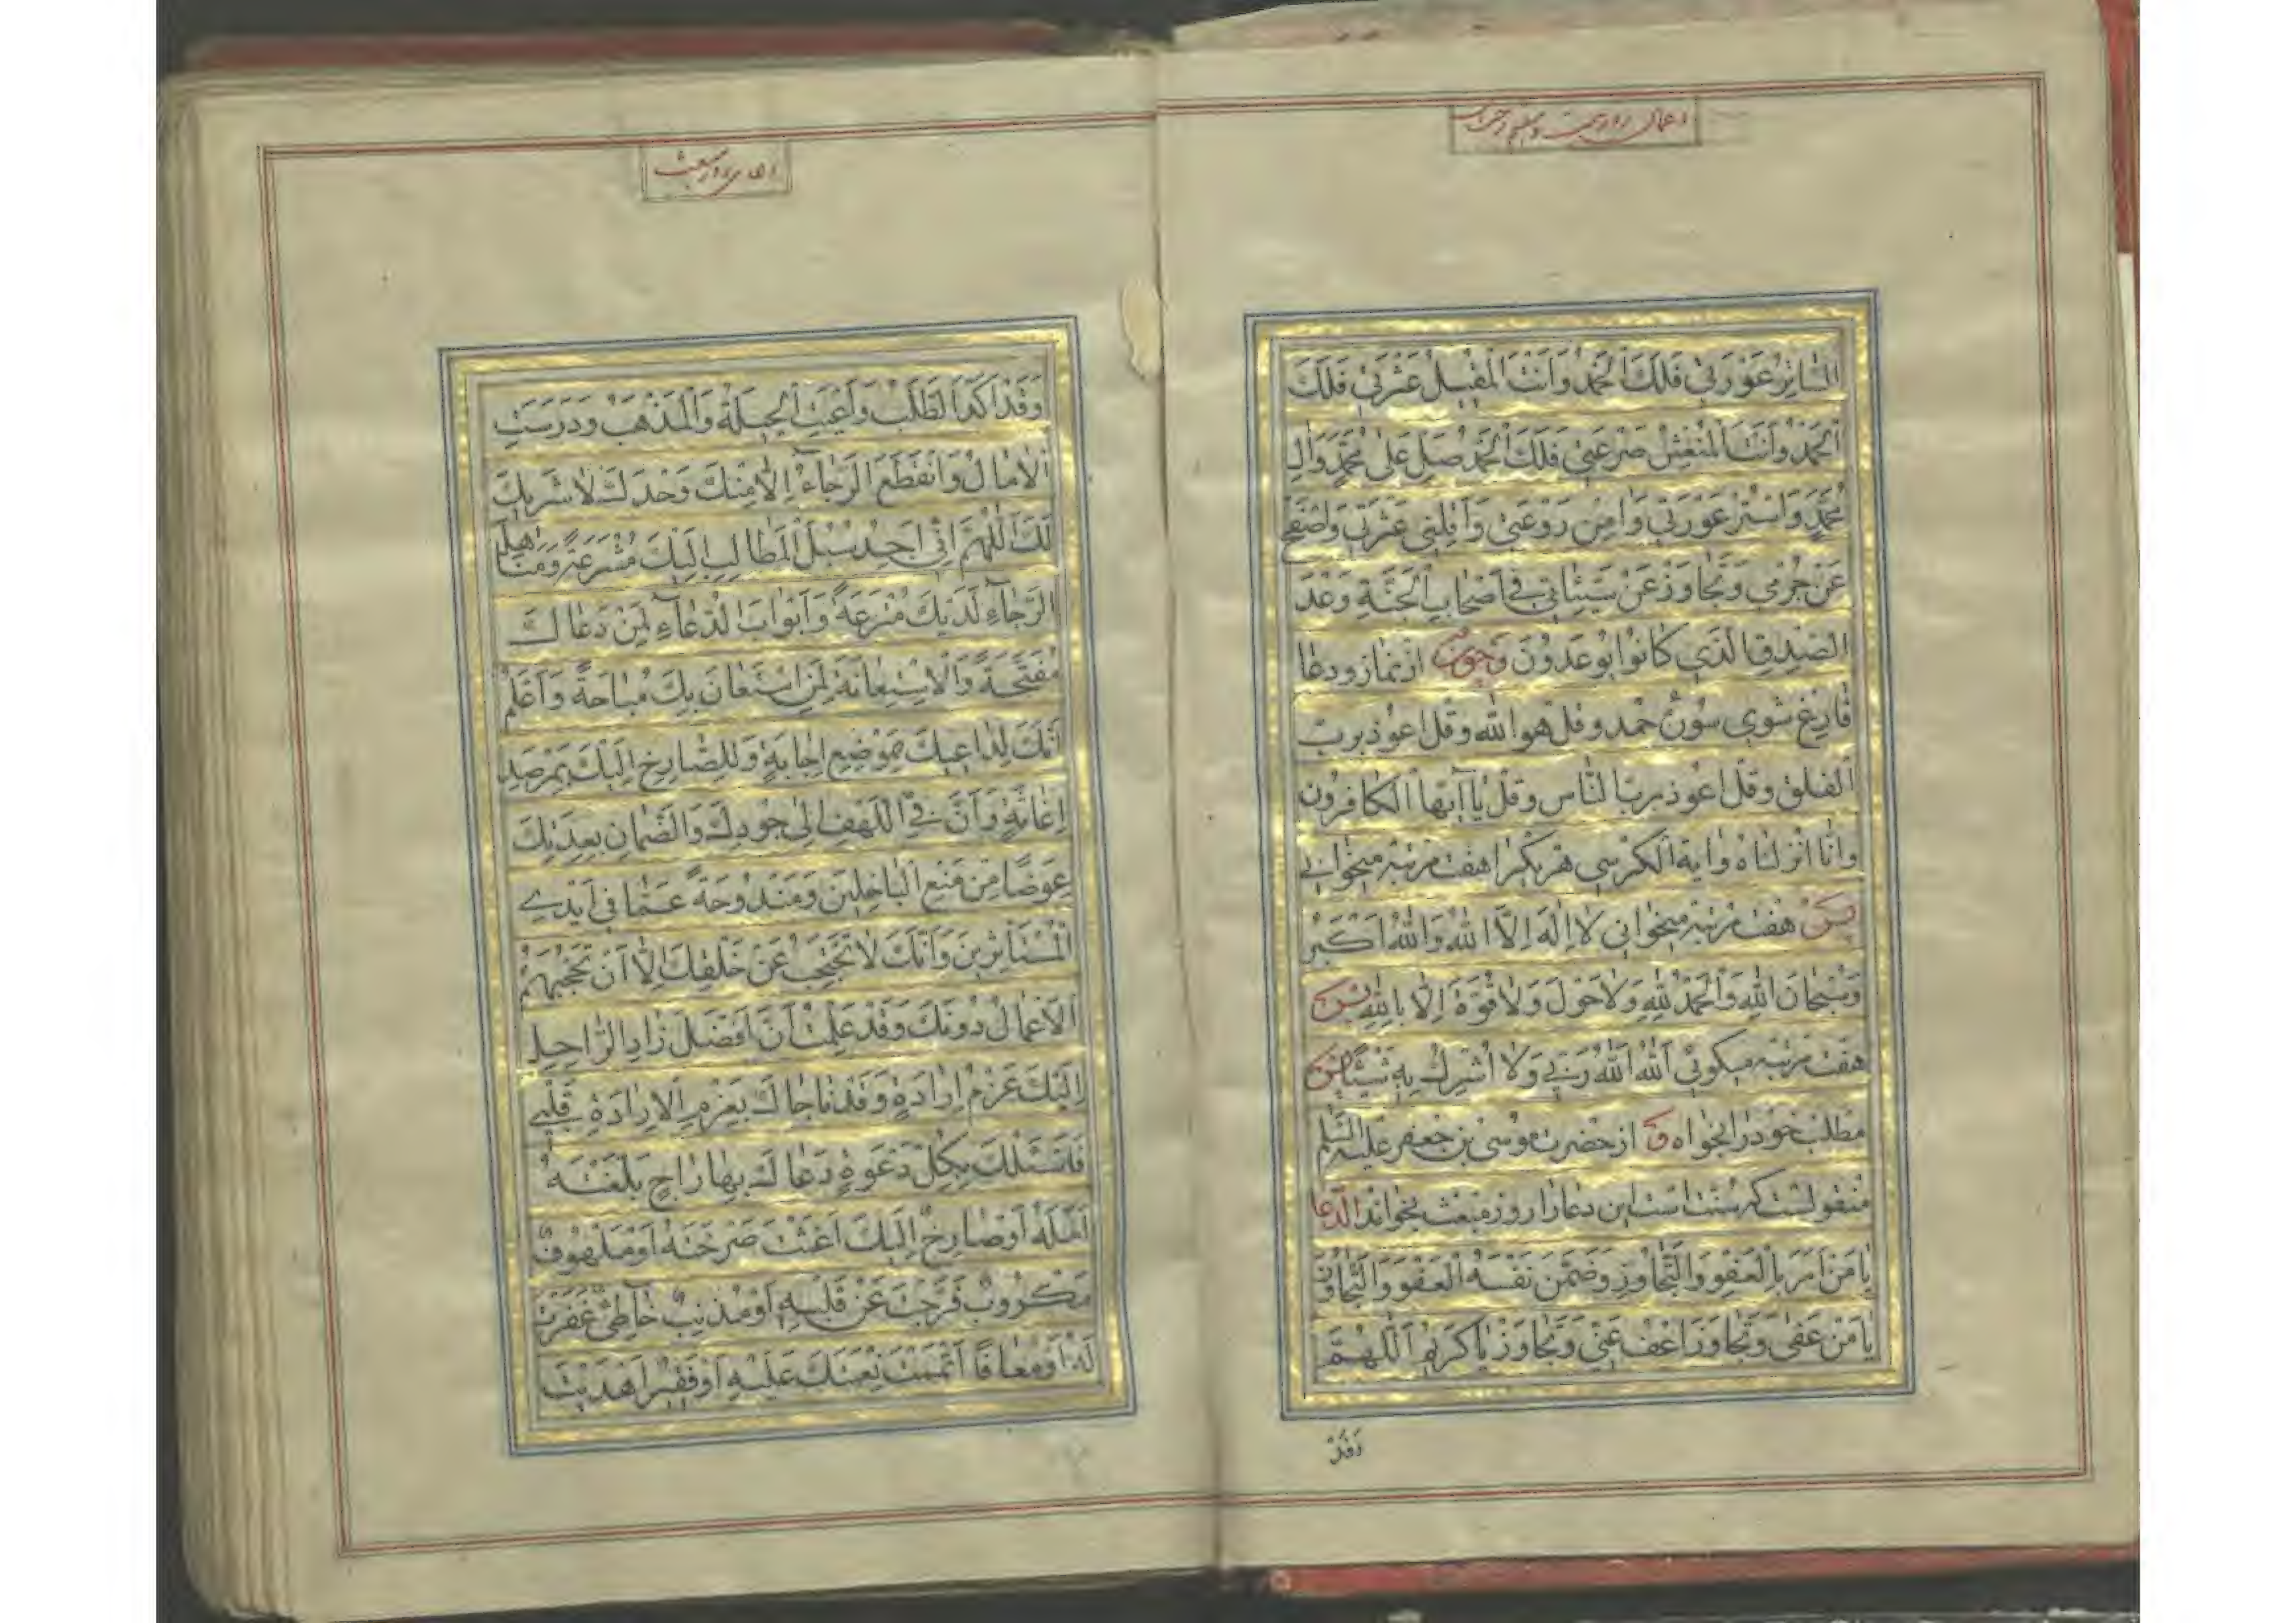 اعمال روز بیست و هفتم رجب
السَّاتِرُ عَوْرَتِي فَلَكَ الْحَمْدُ وَاَنْتَ الْمُقِيلُ عَثْرَتِي فَلَكَ
الْحَمْدُ وَاَنْتَ الْمُنْعِشُ صَرْعَتِي فَلَكَ الْحَمْدُ صَلِّ عَلٰى مُحَمَّدٍ وَاٰلِ
مُحَمَّدٍ وَاسْتُرْ عَوْرَتِي وَاٰمِنْ رَوْعَتِي وَاَقِلْنِي عَثْرَتِي وَاصْفَحْ
عَنْ جُرْمِي وَتَجَاوَزْ عَنْ سَيِّئَاتِي فِي اَصْحَابِ الْجَنَّةِ وَعْدَ
الصِّدْقِ الَّذِي كَانُوا يُوعَدُونَ وچون از نماز ودعا
فارغ شوی سوره حمد وقل هو الله وقل اعوذ برب
الفلق وقل اعوذ برب الناس وقل یا ایها الکافرون
وانا انزلناه وایة الکرسی هر یک را هفت مرتبه میخوانی
پس هفت مرتبه میخوانی لَا اِلٰهَ اِلَّا اللهُ وَاللهُ اَكْبَرُ
وَسُبْحَانَ اللهِ وَالْحَمْدُ لِلهِ وَلَا حَوْلَ وَلَا قُوَّةَ اِلَّا بِاللهِ پس
هفت مرتبه میکوئی اَللهُ اَللهُ رَبِّي وَلَا اُشْرِكُ بِهِ شَيْئًا پس
مطلب خود را بخواه و از حضرت موسی بن جعفر علیه السلم
منقولست که سنت است این دعا را روز مبعث بخواند الدعا
يَا مَنْ اَمَرَ بِالْعَفْوِ وَالتَّجَاوُزِ وَضَمَّنَ نَفْسَهُ الْعَفْوَ وَالتَّجَاوُزَ
يَا مَنْ عَفٰى وَتَجَاوَزَ اعْفُ عَنِّي وَتَجَاوَزْ يَا كَرِيمُ اَللّٰهُمَّ
وَقَدْ
دعای روز مبعث
وَقَدْ اَكْدَا الطَّلَبُ وَاَعْيَتِ الْحِيلَةُ وَالْمَذْهَبُ وَدَرَسَتِ
الْاٰمَالُ وَانْقَطَعَ الرَّجَاءُ اِلَّا مِنْكَ وَحْدَكَ لَا شَرِيكَ
لَكَ اَللّٰهُمَّ اِنِّي اَجِدُ سُبُلَ الْمَطَالِبِ اِلَيْكَ مُشْرَعَةً وَمَنَاهِلَ
الرَّجَاءِ لَدَيْكَ مُتْرَعَةً وَاَبْوَابَ الدُّعَاءِ لِمَنْ دَعَاكَ
مُفَتَّحَةً وَالْاِسْتِعَانَةَ لِمَنِ اسْتَعَانَ بِكَ مُبَاحَةً وَاَعْلَمُ
اَنَّكَ لِدَاعِيكَ بِمَوْضِعِ اِجَابَةٍ وَلِلصَّارِخِ اِلَيْكَ بِمَرْصَدِ
اِغَاثَةٍ وَاَنَّ فِي اللَّهْفِ اِلٰى جُودِكَ وَالضَّمَانِ بِعِدَتِكَ
عِوَضًا مِنْ مَنْعِ الْبَاخِلِينَ وَمَنْدُوحَةً عَمَّا فِي اَيْدِي
الْمُسْتَأْثِرِينَ وَاَنَّكَ لَا تَحْتَجِبُ عَنْ خَلْقِكَ اِلَّا اَنْ تَحْجُبَهُمُ
الْاَعْمَالُ دُونَكَ وَقَدْ عَلِمْتُ اَنَّ اَفْضَلَ زَادِ الرَّاحِلِ
اِلَيْكَ عَزْمُ اِرَادَةٍ وَقَدْ نَاجَاكَ بِعَزْمِ الْاِرَادَةِ قَلْبِي
فَاَسْئَلُكَ بِكُلِّ دَعْوَةٍ دَعَاكَ بِهَا رَاجٍ بَلَّغْتَهُ
اَمَلَهُ اَوْ صَارِخٌ اِلَيْكَ اَغَثْتَ صَرْخَتَهُ اَوْ مَلْهُوفٌ
مَكْرُوبٌ فَرَّجْتَ عَنْ قَلْبِهِ اَوْ مُذْنِبٌ خَاطِئٌ غَفَرْتَ
لَهُ اَوْ مُعَافًا اَتْمَمْتَ نِعْمَتَكَ عَلَيْهِ اَوْ فَقِيرٌ اَهْدَيْتَ